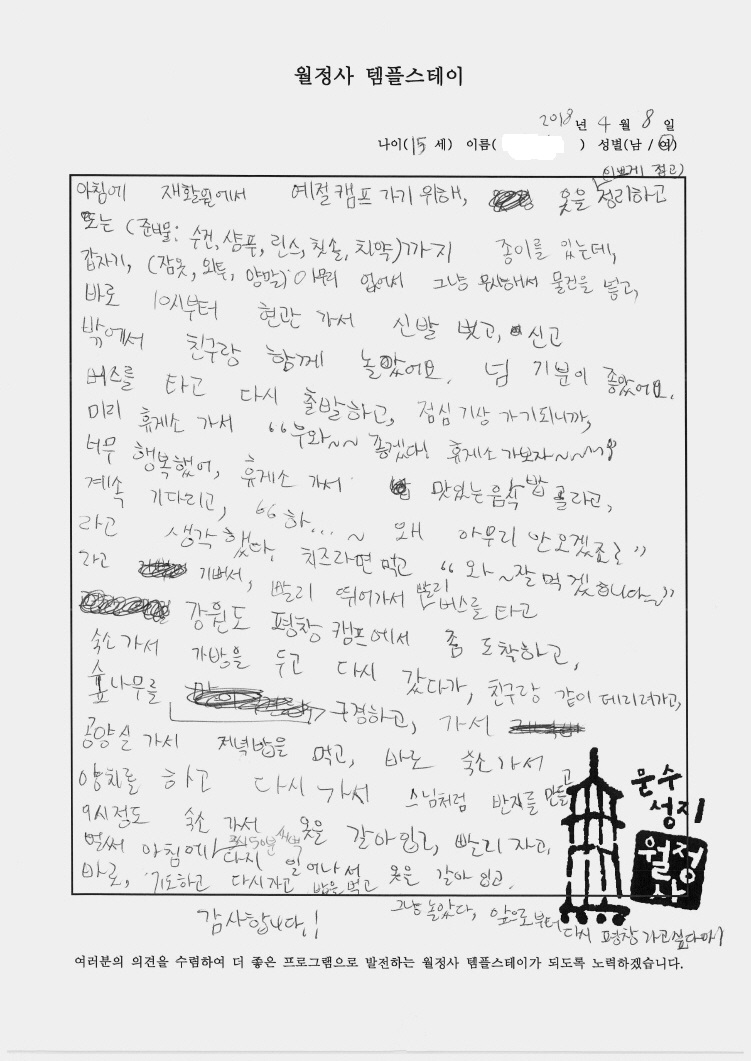 월정사 템플스테이
2018년 4월 8일
나이(15세) 이름( ) 성별(남/여)
이쁘게 접고)
아침에 재활원에서 예절캠프 가기 위해, 옷을 정리하고
또는 (준비물: 수건, 샴푸, 린스, 칫솔, 치약)까지 종이를 있는데,
갑자기, (잠옷, 외투, 양말) 아무리 없어서 그냥 무시해서 물건을 넣고,
바로 10시부터 현관 가서 신발 벗고, 신고
밖에서 친구랑 함께 놀았어요. 넘 기분이 좋았어요.
버스를 타고 다시 출발하고, 점심 기상 가기되니까,
미리 휴게소 가서 "우와~~ 좋겠다! 휴게소 가보자~~~
너무 행복했어, 휴게소 가서 맛있는 음식 밥 골라고,
계속 기다리고, "하...~ 왜 아무리 안오겠죠?"
라고 생각했다. 치즈라면 먹고 "와~잘 먹겠습니다~"
라고 기뻐서, 빨리 뛰어가서 빨리 버스를 타고
강원도 평창 캠프에서 좀 도착하고,
숙소 가서 가방을 두고 다시 갔다가, 친구랑 같이 데리려가고,
숲나무를 구경하고, 가서
공양실 가서 저녁밥을 먹고, 바로 숙소 가서
양치를 하고 다시 가서 스님처럼 반지를 만들고
9시정도 숙소 가서 옷을 갈아입고, 빨리 자고,
벌써 아침에 4시50분 새벽 다시 일어나서 옷을 갈아 입고.
바로, 기도하고 다시 자고 밥을 먹고
그냥 놀았다, 앞으로부터 다시 평창 가고싶다아!
감사합니다.!
문수
성지
월정
사
여러분의 의견을 수렴하여 더 좋은 프로그램으로 발전하는 월정사 템플스테이가 되도록 노력하겠습니다.